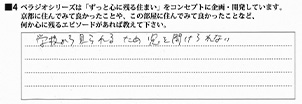 ■4 ペラジオシリーズは「ずっと心に残る住まい」をコンセプトに企画・開発しています。
京都に住んでみて良かったことや、この部屋に住んでみて良かったことなど、
何か心に残るエピソードがあれば教えて下さい。
学校から見られるため窓を開けられない